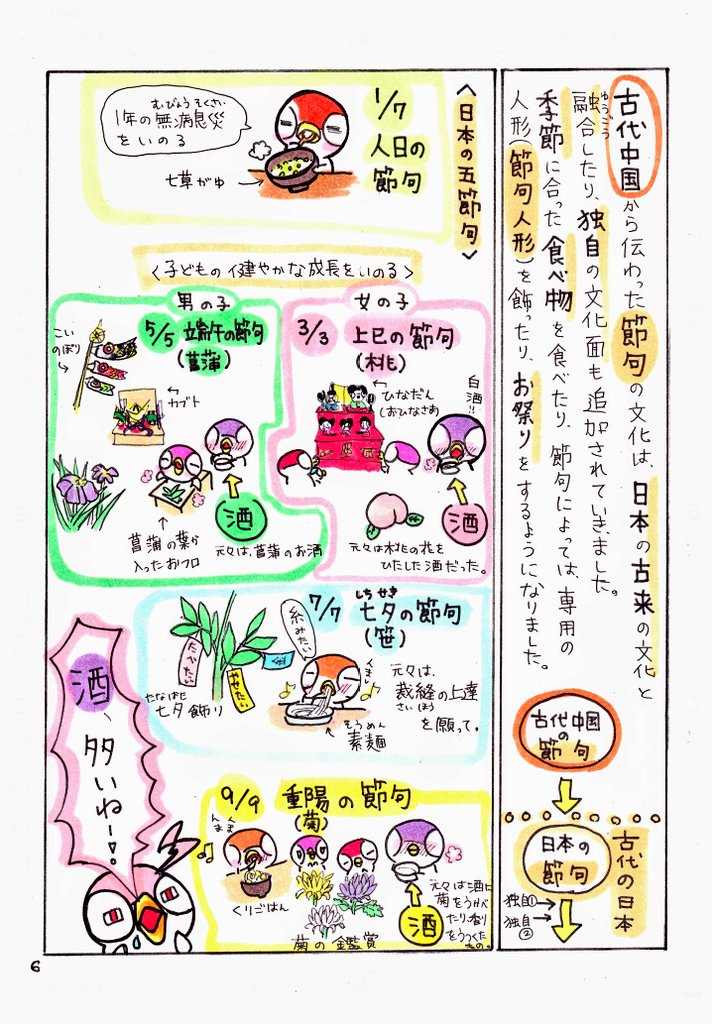 古代中国から伝わった節句の文化は、日本の古来の文化と
融合したり、独自の文化面も追加されていきました。
ゆうごう
季節に合った食べ物を食べたり、節句によっては、専用の
人形(節句人形)を飾ったり、お祭りをするようになりました。
古代中国
の
節句
古代の日本
日本の
節句
独自①
独自②
〈日本の五節句〉
1/7
人日の
節句
むびょうそくさい
1年の無病息災
をいのる
七草がゆ
〈子どもの健やかな成長をいのる〉
女の子
3/3 上巳の節句
(桃)
ひなだん
(おひなさま)
白酒!!
酒
元々は桃の花を
ひたした酒だった。
男の子
5/5 端午の節句
(菖蒲)
こい
のぼり
カブト
酒
菖蒲の葉が
入ったおフロ
元々は、菖蒲のお酒
しちせき
7/7 七夕の節句
(笹)
糸みたい
たべたい
やせたい
たなばた
七夕飾り
そうめん
素麺
元々は、
裁縫の上達
さいほう
を願って。
9/9 重陽の節句
(菊)
くりごはん
菊の鑑賞
酒
元々は酒に
菊をうかべ
たり、香り
をうつした
もの。
酒、多いねー!
6